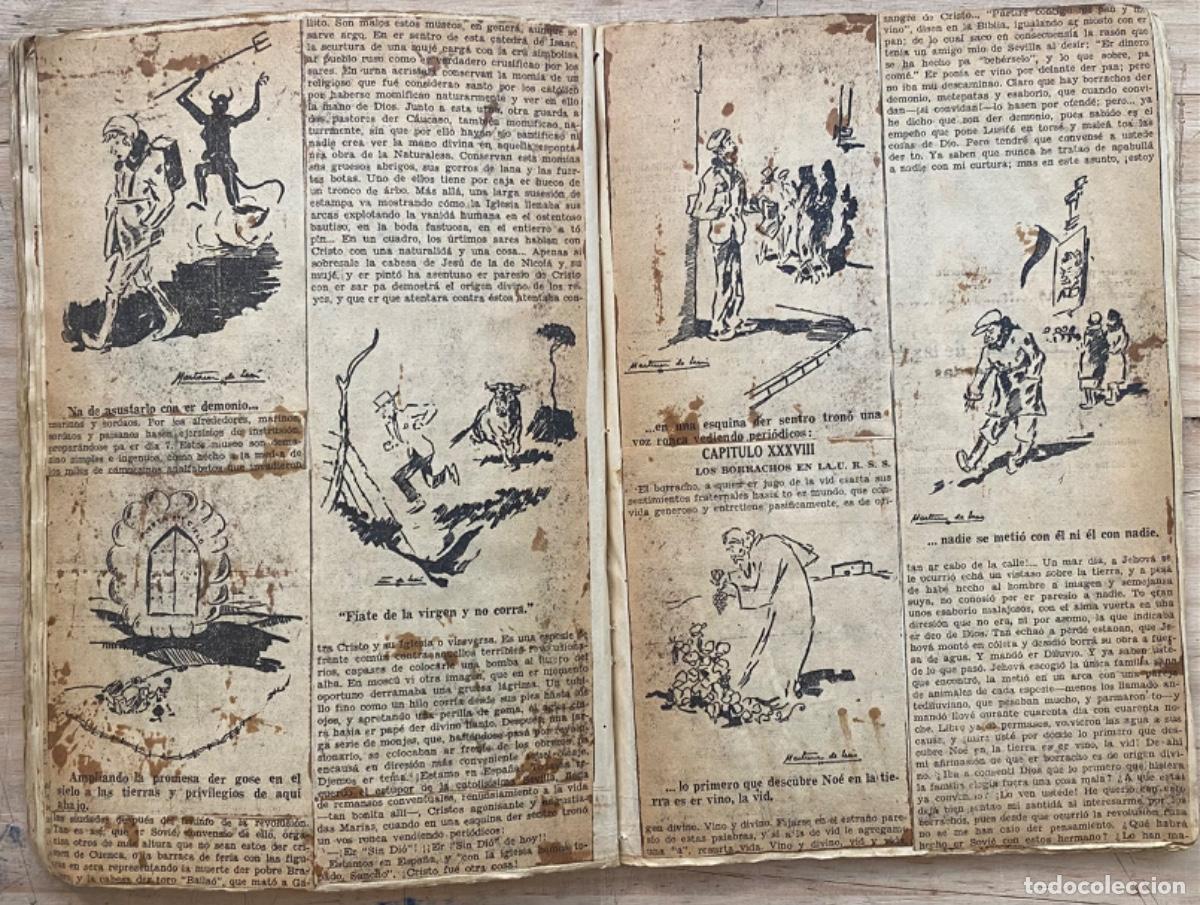 Martínez de León
Na de asustarlo con er demonio...
marinos y sordaos. Por los alrededores, marinos,
sordaos y paisanos hasen ejersisios de instrusión,
preparándose pa er día 7. Estos museo son dema-
siao simples e ingenuos, como hecho a la medía de
los miles de campesinos analfabetos que invadieron
Ampliando la promesa der gose en el
sielo a las tierras y privilegios de aquí
abajo.
las siudades después der triunfo de la revolusión.
Tan es así, que er Sovié, convensío de ello, orga-
tina otros de más altura que no sean estos der cri-
men de Cuenca, o la barraca de feria con las figu-
ras en sera representando la muerte der pobre Bra-
y la cabesa der toro "Bailaó", que mató a Ga-
llito. Son malos estos museos, en generá, aunque se
sarve argo. En er sentro de esta catedrá de Isaac,
la scurtura de una mujé cargá con la crú simbolisa
ar pueblo ruso como er verdadero crusificao por los
sares. En urna acristalá conservan la momia de un
religioso que fué considerao santo por los católico
por haberse momificao naturarmente y ver en ello
la mano de Dios. Junto a esta urna, otra guarda a
dos pastores der Cáucaso, también momificao na-
turmente, sin que por ello hayan sío santificao ni
nadie crea ver la mano divina en aquella espontá-
nea obra de la Naturalesa. Conservan esta momias
sus gruesos abrigos, sus gorros de lana y las fuer-
tes botas. Uno de ellos tiene por caja er hueco de
un tronco de árbo. Más allá, una larga susesión de
estampa va mostrando cómo la Iglesia llenaba sus
arcas explotando la vanidá humana en el ostentoso
bautiso, en la boda fastuosa, en el entierro a tó
pin... En un cuadro, los úrtimos sares hablan con
Cristo con una naturalidá y una cosa... Apenas si
sobresale la cabesa de Jesú de la de Nicolá y su
mujé, y er pintó ha asentuao er paresío de Cristo
con er sar pa demostrá el origen divino de los re-
yes, y que er que atentara contra éstos atentaba con-
"Fíate de la virgen y no corra."
tra Cristo y su Iglesia o viseversa. Es una espesie de
frente común contra aquellos terribles revolusiona-
rios, capases de colocarle una bomba al lusero del
alba. En moscú vi otra imagen, que en er momento
oportuno derramaba una gruesa lágrima. Un tubi-
llo fino como un hilo corría desde sus pies hasta sus
ojos, y apretando una perilla de goma, el agua cu-
rría hasta er papé der divino llanto. Después, una lar-
ga serie de monjes, que, hasiéndose pasá por revolu-
sionario, se colocaban ar frente de los obreros pa
encausá en diresión más conveniente
Dijemos er tema. ¡Estamo en España!
querdo el estupor de la catolisísima Sevilla, llena
de remansos conventuales, rendidamiento a la vida
—tan bonita allí—, Cristos agonisante y angustia-
das Marías, cuando en una esquina der sentro tronó
un vos ronca vendiendo periódicos:
—¡Er "Sin Dió"! ¡¡Er "Sin Dió" de hoy!!
Estamos en España, y "con la iglesia hemos to-
pado, Sancho". ¡Cristo fué otra cosa!
Martínez de León
...en una esquina der sentro tronó una
voz ronca vediendo periódicos:
CAPITULO XXXVIII
LOS BORRACHOS EN LA U. R. S. S.
El borracho, a quien er jugo de la vid exarta sus
sentimientos fraternales hasia to er mundo, que con-
vida generoso y entretiene pasíficamente, es de ori-
Martínez de León
...lo primero que descubre Noé en la tie-
rra es er vino, la vid.
gen divino. Vino y divino. Fijarse en el estraño pare-
sío de estas palabras, y si a la de vid le agregamos
una "a", resurta vida. Vino y divino, vid y vida
sangre de Cristo... "Partiré contigo mi pan y mi
vino", disen en la Biblia, igualando ar mosto con er
pan; de lo cual saco en consecuensia la rasón que
tenía un amigo mío de Sevilla al desir: "Er dinero
se ha hecho pa "bebérselo", y lo que sobre, pa
comé." Er ponía er vino por delante der pan; pero
no iba mu descaminao. Claro que hay borrachos der
demonio, metepatas y esaborío, que cuando convi-
dan—¡si convidan!—lo hasen por ofendé; pero... ya
he dicho que son der demonio, pues sabido es el
empeño que pone Lusifé en torsé y maleá toa las
cosas de Dio. Pero tendré que convensé a ustede
der to. Ya saben que nunca he tratao de apabullá
a nadie con mi curtura; mas en este asunto, ¡estoy
Martínez de León
...nadie se metió con él ni él con nadie.
tan ar cabo de la calle!... Un mar día, a Jehová se
le ocurrió echá un vistaso sobre la tierra, y a pesá
de habé hecho al hombre a imagen y semejansa
suya, no conosió por er paresío a nadie. To eran
unos esaborío malajosos, con el alma vuerta en una
diresión que no era, ni por asomo, la que indicaba
er deo de Dios. Tan echao a perdé estaban, que Je-
hová montó en cólera y desidió borrá su obra a fuer-
sa de agua. Y mandó er Diluvio. Y ya saben uste-
de lo que pasó. Jehová escogió la única familia sana
que encontró, la metió en un arca con una pareja
de animales de cada espesie—menos los llamado an-
tediluviano, que pesaban mucho, y parmaron to—y
mandó llové durante cuarenta día con cuarenta no-
che. Libre ya de permasos, vorvieron las agua a sus
cause, y ¡mira usté por dónde lo primero que des-
cubre Noé en la tierra es er vino, la vid! De ahí
mi afirmasión de que er borracho es de origen divi-
no. ¡Iba a consentí Dios que lo primero que hisiera
la familia elegía fuera una cosa mala? ¿A que están
ya convensío? ¿Lo ven ustede! He querío con esto
dejá bien sentao mi santidá si interesarme por los
borrachos, pues desde que ocurrió la revolusión rusa
no se me han caío der pensamiento. ¿Qué habrá
hecho er Sovié con estos hermano? ¿Lo han ma-
todocoleccion